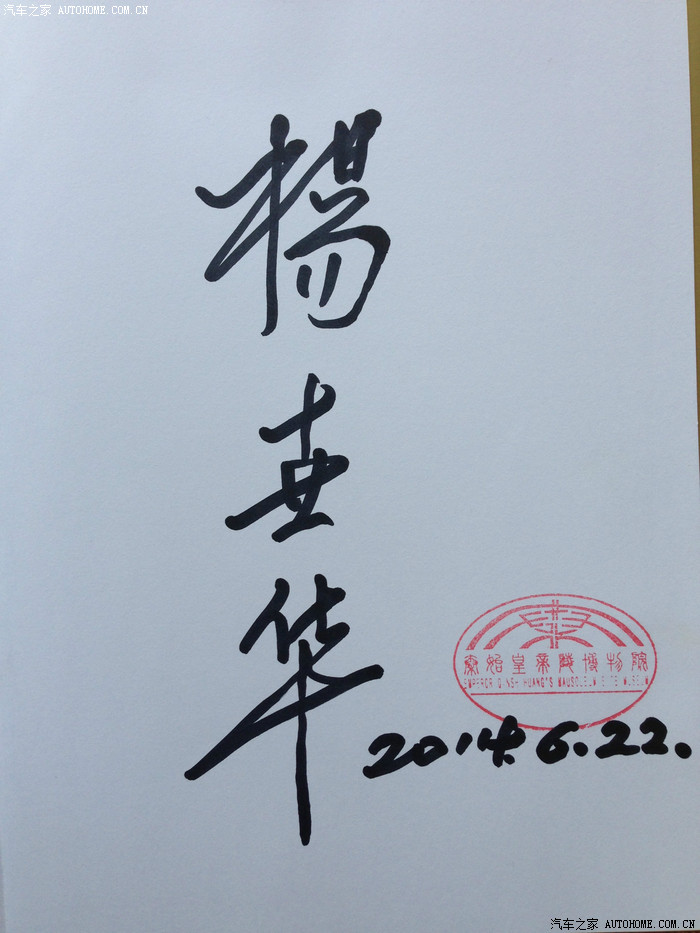 汽车之家 AUTOHOME.COM.CN
楊
华
秦始皇帝陵博物院
EMPEROR QINSHIHUANG'S MAUSOLEUM SITE MUSEUM
2014.6.22.
汽车之家 AUTOHOME.COM.CN